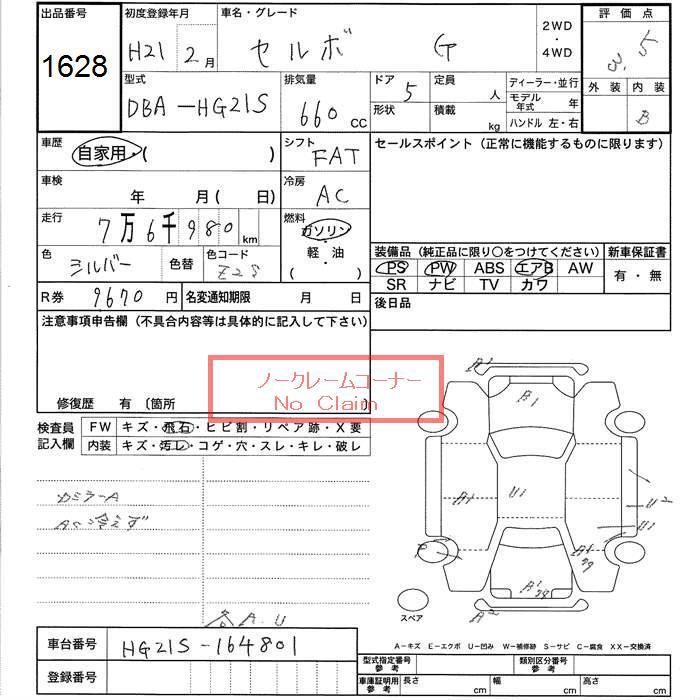 出品番号
1628
初度登録年月
H21 2月
車名・グレード
セルボ G
2WD
・
4WD
評価点
3.5
外装 内装
B
型式
DBA-HG21S
排気量
660 cc
ドア 5
形状
定員 人
積載 kg
ディーラー・並行
モデル年式 年
ハンドル 左・右
車歴
自家用・( )
シフト
FAT
セールスポイント (正常に機能するものに限ります)
車検
年 月 ( 日)
冷房
AC
走行
7万6千980 km
燃料
ガソリン
・
軽・油
( )
色
シルバー
色替
色コード
Z2S
装備品 (純正品に限り〇をつけてください)
PS PW ABS エアB AW
SR ナビ TV カワ
新車保証書
有・無
R券 9670 円
名変通知期限 月 日
後日品
注意事項申告欄 (不具合内容等は具体的に記入して下さい)
ノークレームコーナー
No Claim
修復歴 有 〔箇所
検査員
記入欄
FW キズ・飛石・ヒビ割・リペア跡・X要
内装 キズ・汚レ・コゲ・穴・スレ・キレ・破レ
カミラーA
AC冷えず
各A.U
A1
B1
A1
U1
U2
U1
P
A1
A2
スペア
A-キズ E-エクボ U-凹み W-補修跡 S-サビ C-腐食 XX-交換済
車台番号 HG21S-164801
登録番号
型式指定番号
参考
類別区分番号
参考
車庫証明用
参考
長さ cm
幅 cm
高さ cm